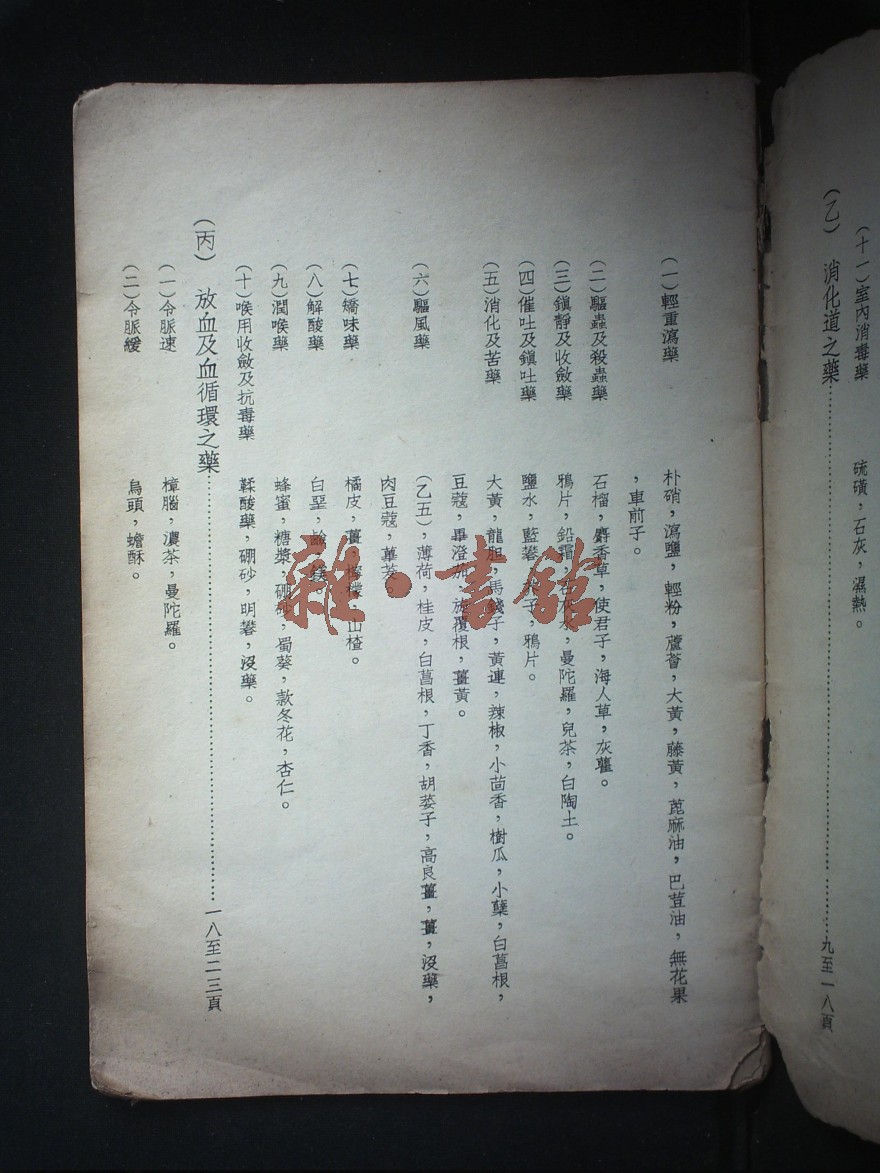 (十一)室內消毒藥 硫磺，石灰，濕熱。
(乙) 消化道之藥……九至一八頁
(一)輕重瀉藥 朴硝，瀉鹽，輕粉，蘆薈，大黃，藤黃，蓖麻油，巴荳油，無花果
，車前子。
(二)驅蟲及殺蟲藥 石榴，麝香草，使君子，海人草，灰藋。
(三)鎮靜及收斂藥 鴉片，鉛霜，石灰水，曼陀羅，兒茶，白陶土。
(四)催吐及鎮吐藥 鹽水，藍礬，子，鴉片。
(五)消化及苦藥 大黃，龍胆，馬錢子，黃連，辣椒，小茴香，樹瓜，小蘖，白菖根，
豆蔻，畢澄茄，旋覆根，薑黃。
(六)驅風藥 (乙五)，薄荷，桂皮，白菖根，丁香，胡荽子，高良薑，薑，沒藥，
肉豆蔻，蓽茇。
(七)矯味藥 橘皮，薑，檸檬，山楂。
(八)解酸藥 白堊，鹼，鎂。
(九)潤喉藥 蜂蜜，糖漿，硼砂，蜀葵，款冬花，杏仁。
(十)喉用收斂及抗毒藥 鞣酸藥，硼砂，明礬，沒藥。
(丙) 放血及血循環之藥……一八至二三頁
(一)令脈速 樟腦，濃茶，曼陀羅。
(二)令脈緩 烏頭，蟾酥。
雜·書館